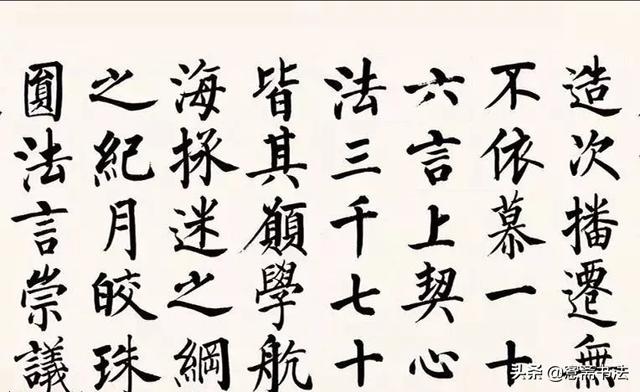 造次播遷無
不依慕一十
六言上契心
法三千七十
皆其願學航
海拯迷之綱
之紀月皎珠
圓法言崇議
头条 @斋书法